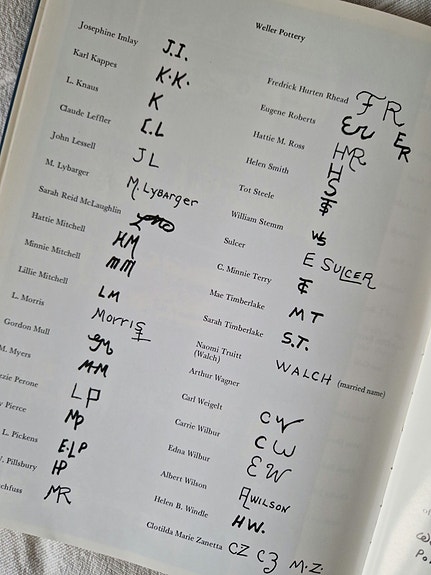 Weller Pottery
Josephine Imlay J.I.
Karl Kappes K.K.
L. Knaus K
Claude Leffler C.L
John Lessell JL
M. Lybarger M. LYBArger
Sarah Reid McLaughlin
Hattie Mitchell HM
Minnie Mitchell mm
Lillie Mitchell LM
L. Morris MorriS
Gordon Mull GM
M. Myers M-M
zie Perone LP
y Pierce MP
L. Pickens E.LP
. Pillsbury HP
chfuss MR
Fredrick Hurten Rhead FR
Eugene Roberts Er ER
Hattie M. Ross HMR
Helen Smith HS
Tot Steele TS
William Stemm WS
Sulcer E SULCER
C. Minnie Terry
Mae Timberlake M T
Sarah Timberlake S.T.
Naomi Truitt
(Walch) WALCH (married name)
Arthur Wagner
Carl Weigelt CW
Carrie Wilbur CW
Edna Wilbur EW
Albert Wilson AWILSON
Helen B. Windle HW.
Clotilda Marie Zanetta CZ CZ M.Z.